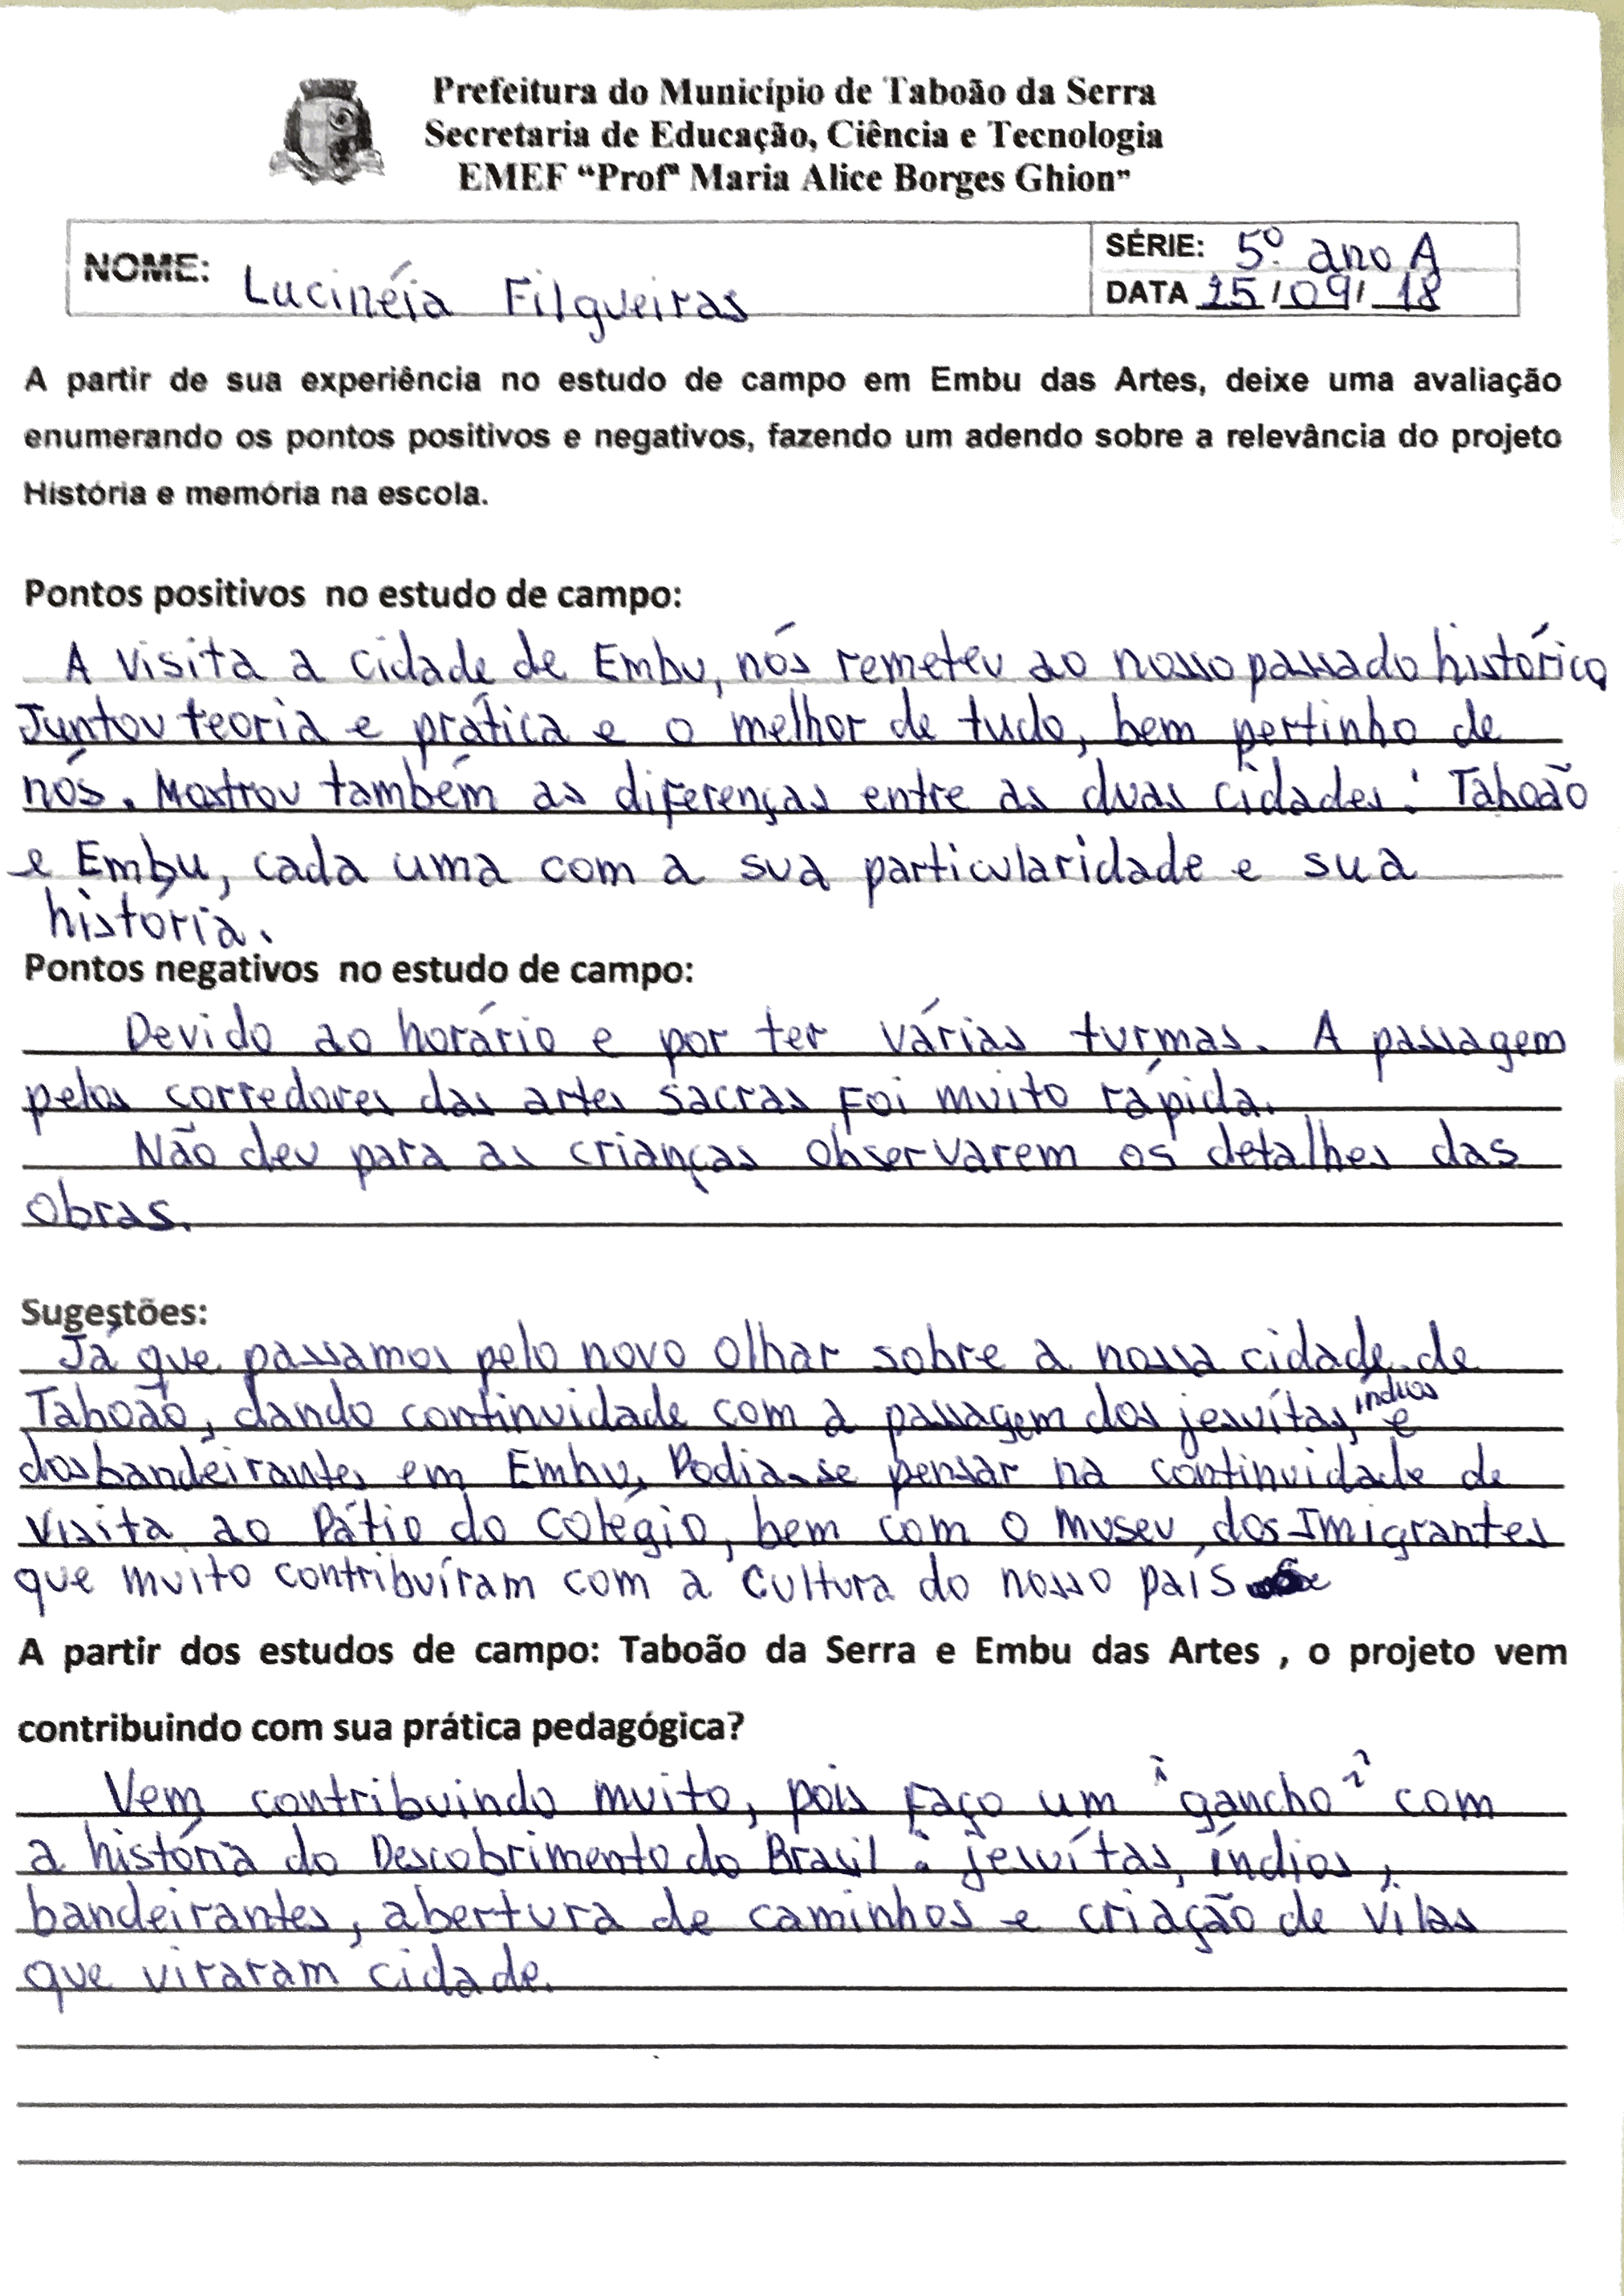 Prefeitura do Município de Taboão da Serra
Secretaria de Educação, Ciência e Tecnologia
EMEF “Profª Maria Alice Borges Ghion”
NOME: Lucinéia Filgueiras
SÉRIE: 5º ano A
DATA 25/09/18
A partir de sua experiência no estudo de campo em Embu das Artes, deixe uma avaliação
enumerando os pontos positivos e negativos, fazendo um adendo sobre a relevância do projeto
História e memória na escola.
Pontos positivos no estudo de campo:
A visita a cidade de Embu, nós remeteu ao nosso passado histórico,
Juntou teoria e prática e o melhor de tudo, bem pertinho de
nós. Mostrou também as diferenças entre as duas cidades: Taboão
e Embu, cada uma com a sua particularidade e sua
história.
Pontos negativos no estudo de campo:
Devido ao horário e por ter várias turmas. A passagem
pelos corredores das artes sacras foi muito rápida.
Não deu para as crianças observarem os detalhes das
obras.
Sugestões:
Já que passamos pelo novo olhar sobre a nossa cidade de
Taboão, dando continuidade com a passagem dos jesuítas, índios e
dos bandeirantes em Embu, Podia-se pensar na continuidade de
visita ao Pátio do Colégio, bem com o museu dos Imigrantes
que muito contribuíram com a cultura do nosso país
A partir dos estudos de campo: Taboão da Serra e Embu das Artes , o projeto vem
contribuindo com sua prática pedagógica?
Vem contribuindo muito, pois faço um "gancho" com
a história do Descobrimento do Brasil: jesuítas, índios,
bandeirantes, abertura de caminhos e criação de vilas
que viraram cidade.